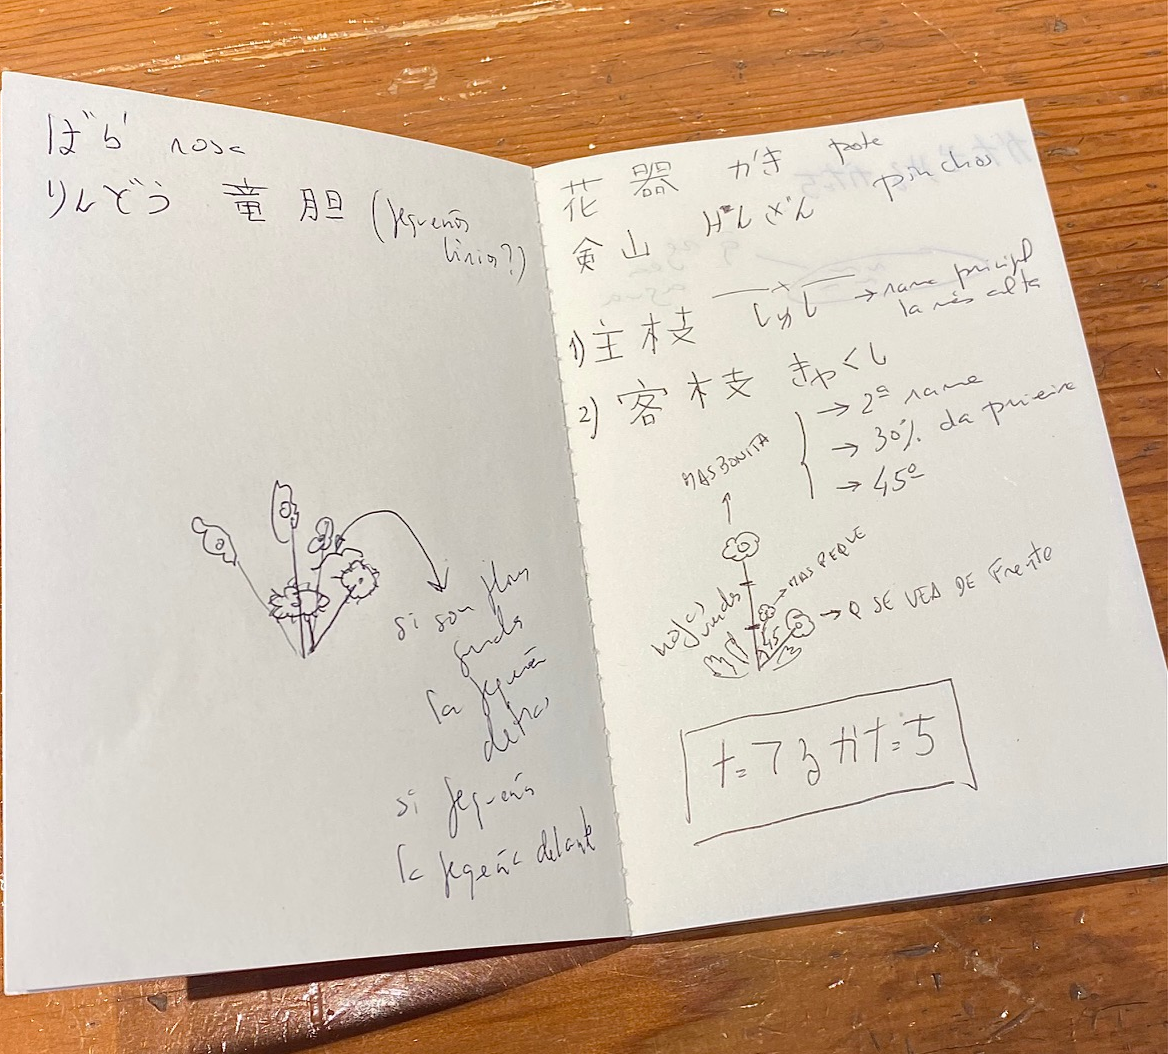 ばら rosa
りんどう 竜胆 (pequeños
lirios?)
si son flores
grandes
la pequeña
detras
si pequeña
la pequeña delante
花器 かき pote
剣山 けんざん pinchos
1) 主枝 しゅし → rame principal
la más alta
2) 客枝 きゃくし
→ 2ª rame
→ 30% da primeira
→ 45º
MAS BONITA
MAS PEQUE
hojas
verdes
45
Q SE VEA DE Frente
たてるかたち